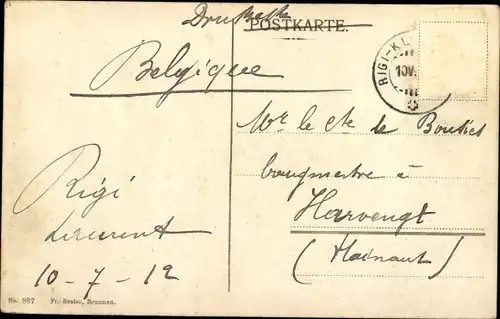 Drucksache
POSTKARTE.
RIGI-KL
10V.
III
Belgique
Mr le Cte le
bourgmestre à
Harvengt
(Hainaut)
Rigi
10-7-12
No. 887 Fr. Resler, Brunnen.